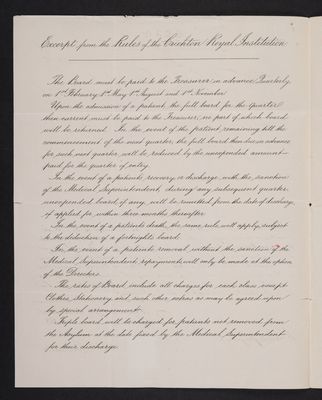 Excerpt from the Rules of the Crichton Royal Institution
The Board must be paid to the Treasurer in advance Quarterly,
on 1st February, 1st May, 1st August and 1st November.
Upon the admission of a patient the full board for the quarter
then current must be paid to the Treasurer, no part of which board
will be returned. In the event of the patient remaining till the
commencement of the next quarter, the full board then due in advance
for such next quarter, will be reduced by the unexpended amount
paid for the quarter of entry.
In the event of a patients recovery, or discharge, with the sanction
of the Medical Superintendent, during any subsequent quarter,
unexpended board, if any, will be remitted from the date of discharge,
if applied for, within three months thereafter.
In the event of a patients death, the same rule will apply, subject
to the deduction of a fortnights board.
In the event of a patients removal without the sanction of the
Medical Superintendent, repayment will only be made at the option
of the Directors.
The rates of Board include all charges for each class except
Clothes, Stationery and such other extras as may be agreed upon
by special arrangement.
Triple board will be charged for patients not removed from
the Asylum at the date fixed by the Medical Superintendent
for their discharge.